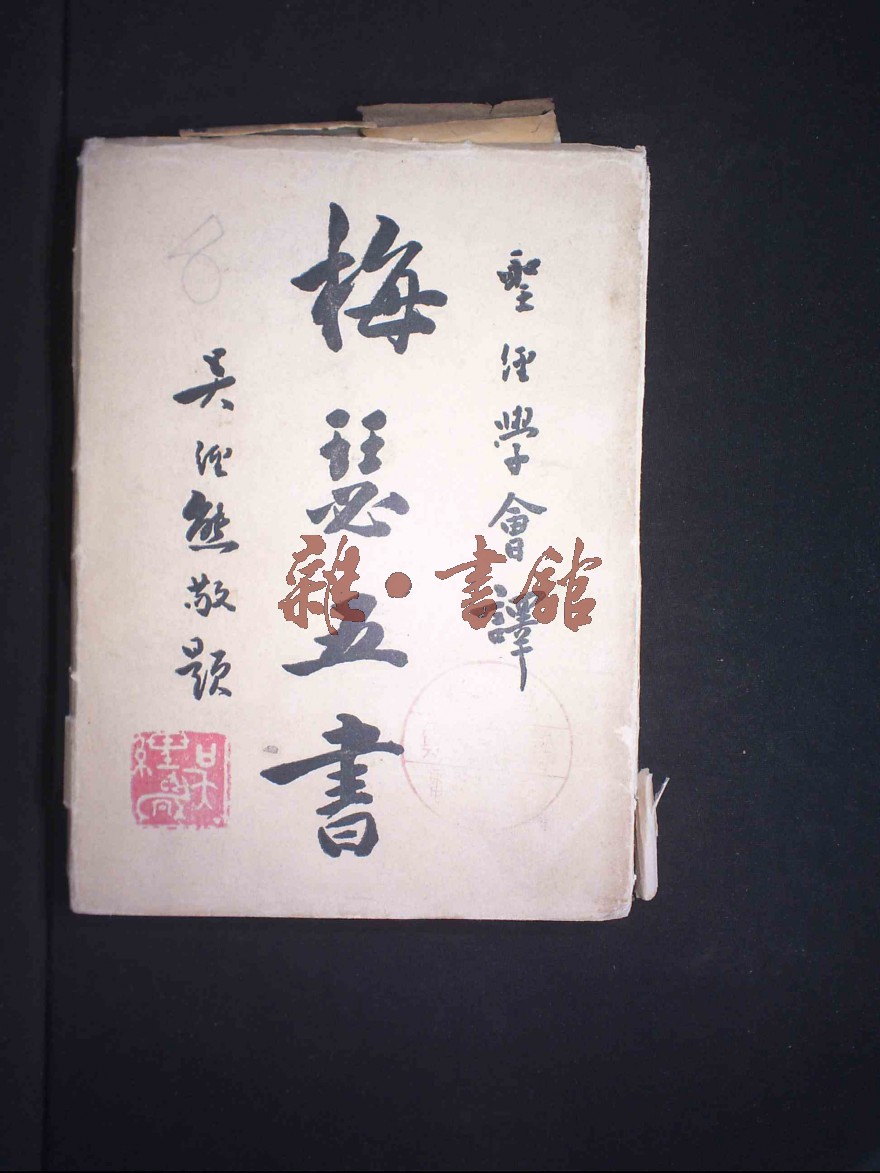 聖經學會譯
梅瑟五書
吳經熊敬題
吳經熊
雜·書館
8